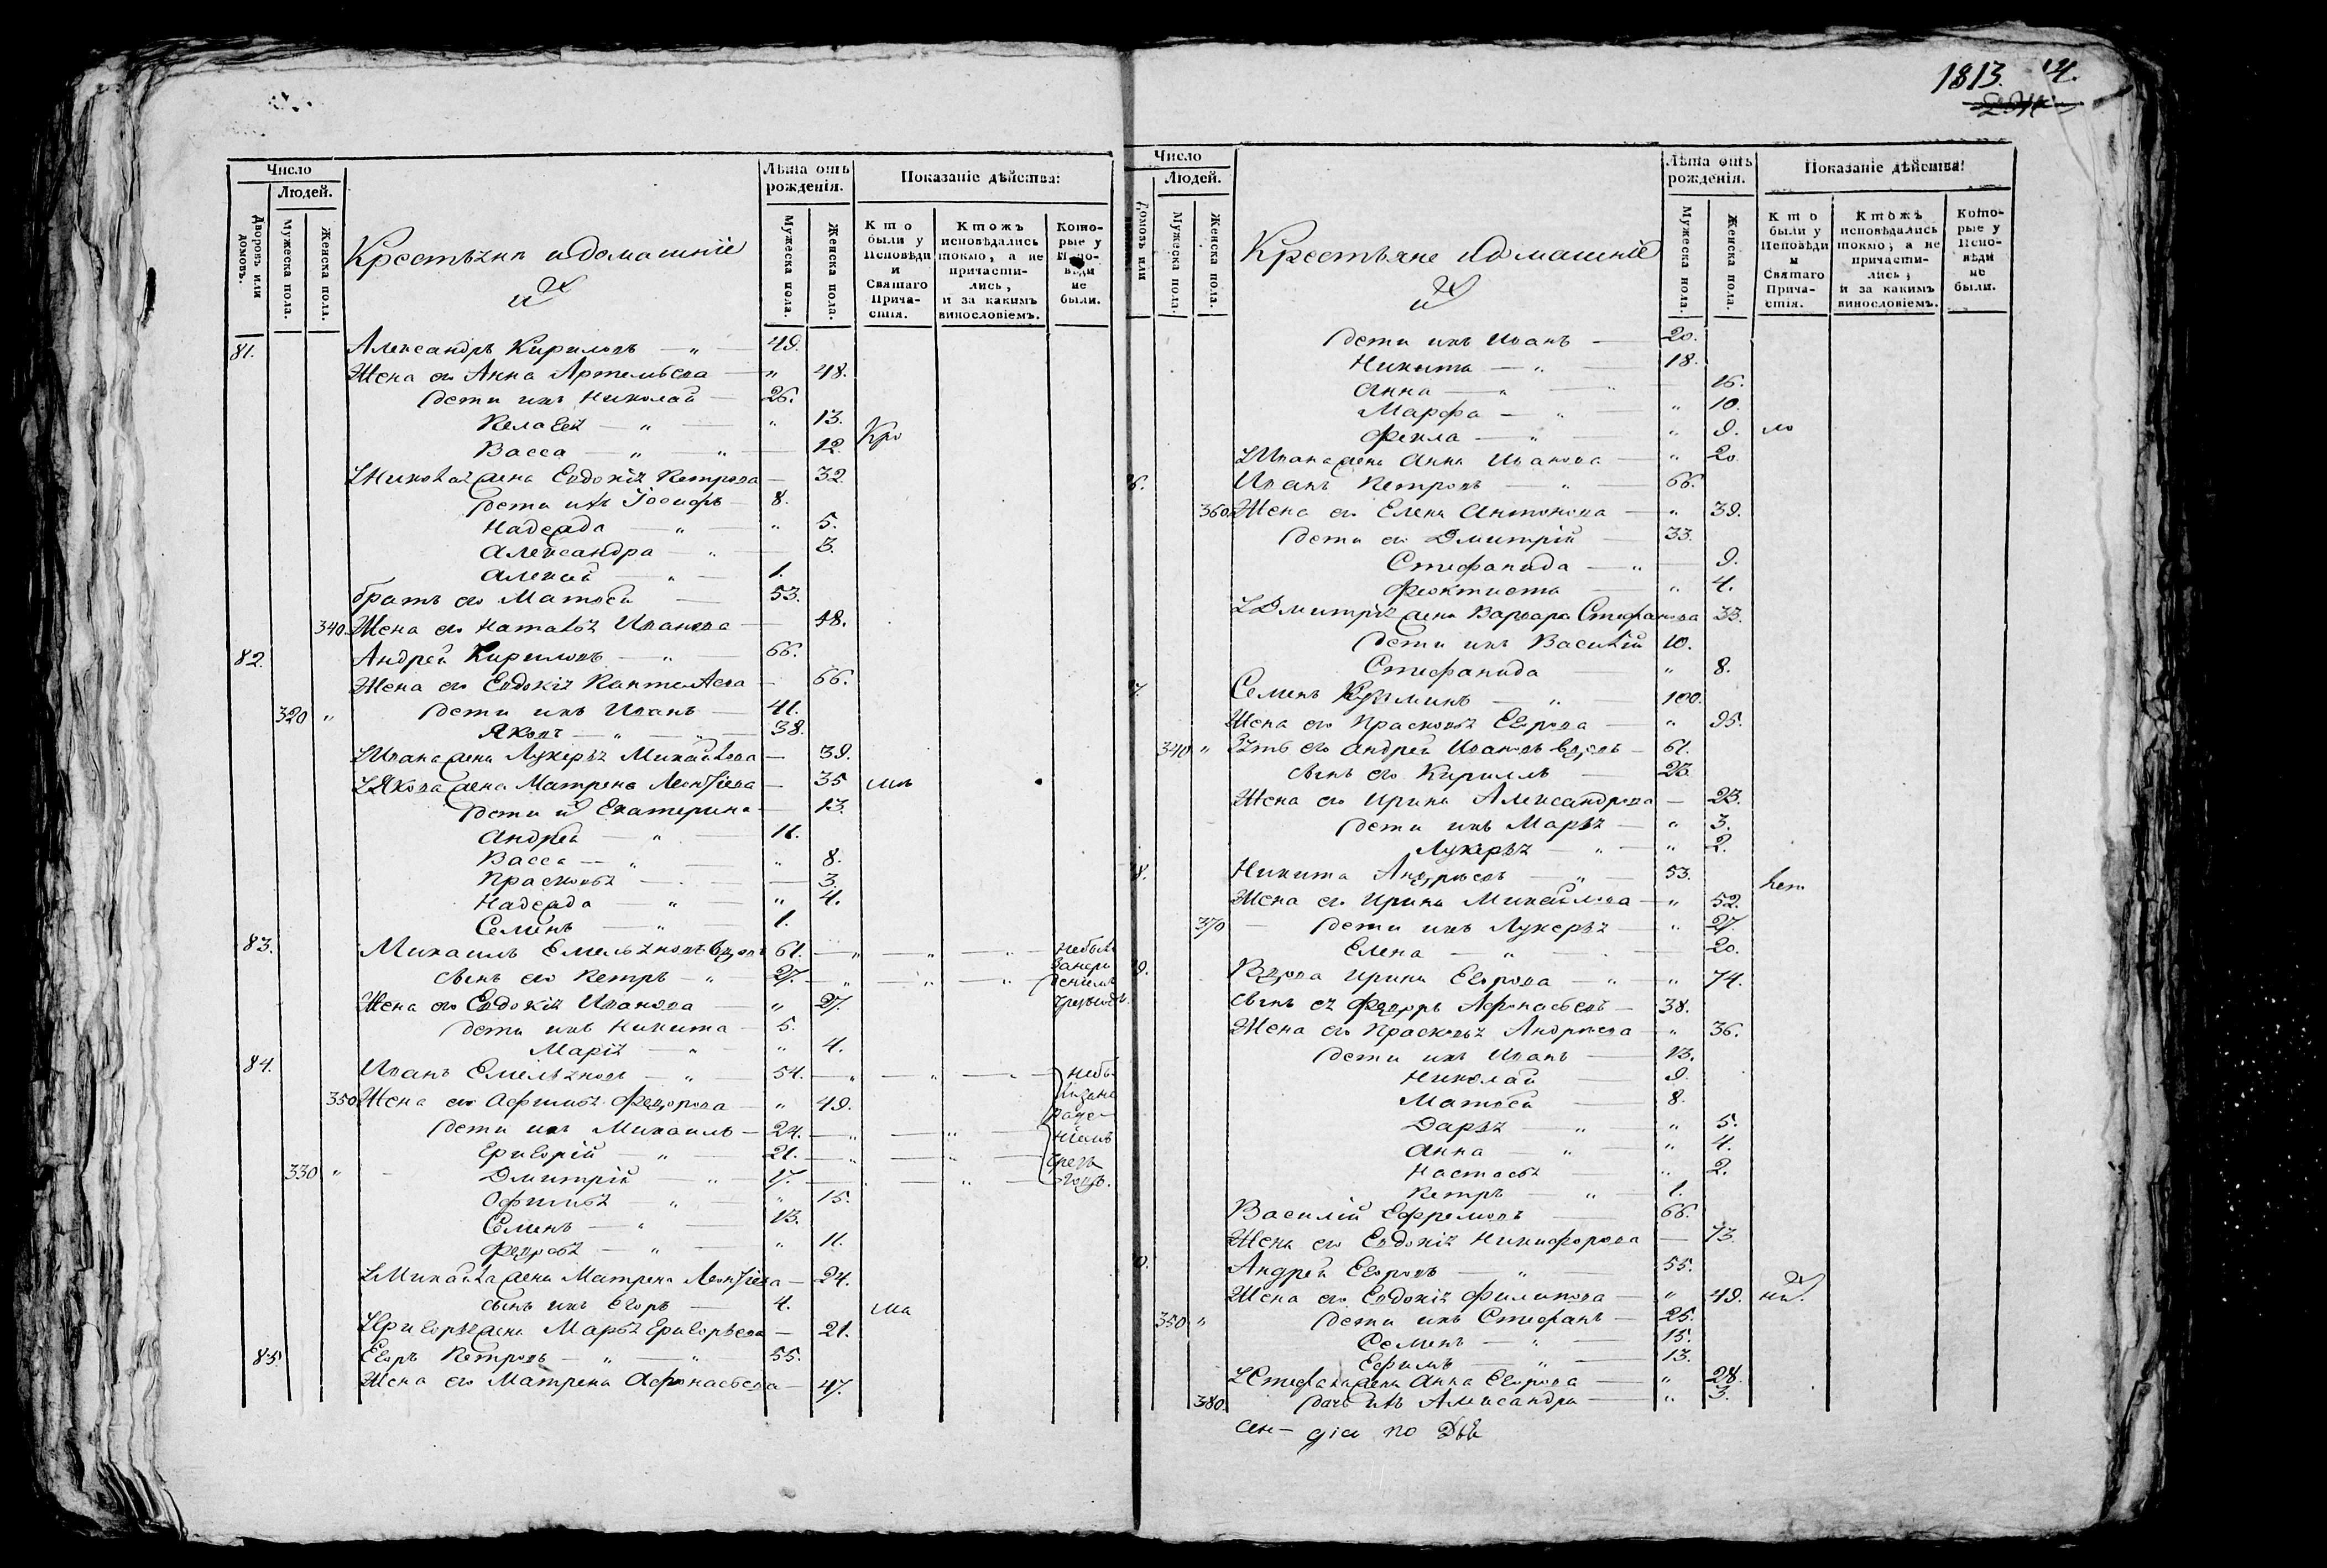 1813. 
Число
Людей.
Дворовъ или домовъ.
Мужеска пола.
Женска пола.
Крестьяня и домашніе
ихъ
Лѣта отъ рожденія.
Мужеска пола.
Женска пола.
Показаніе дѣйства:
Кто были у Исповѣди и Святаго Причастія.
Ктожъ исповѣдались токмо, а не причастились, и за какимъ винословіемъ.
Которые у Исповѣди не были.
81. Александръ Кириловъ — „ — 49.
Жена его Анна Артемьева — „ 48.
Дети ихъ Николай — 26.
Пелагея — „ — „ 13.
Васса — „ — „ — 12.
Николая жена Евдокія Петрова — 32.
Дети ихъ Іосифъ 8.
Надежда — „ — „ 5.
Александра — „ — 3.
Алексей — „ — 1.
братъ его Матвей — 53.
340. Жена его Наталья Иванова — 48.
82. Андрей Кириловъ — „ — 66.
Жена его Евдокія Пантелѣева — 66.
320 „ Дети ихъ Иванъ — 41.
Яковъ — „ — „ — 38.
Ивана жена Лукерья Михайлова — 39.
Якова жена Матрена Леонтіева — 35
Дети их Екатерина — 13.
Андрей — „ — 11.
Васса — „ — „ 8.
Прасковья — — 3.
Надежда — „ — „ 4.
Семенъ — „ — 1.
83. Михаилъ Емельяновъ вдовъ 61. — „ — „ — „ — небыли
сынъ его Петръ — „ 27. — „ — „ — „
Жена его Евдокія Иванова — „ 27.
Дети ихъ Никита — 5.
Марія — „ — „ 4.
84. Иванъ Емельяновъ — „ — 54. — „ — „ — „ —
350 Жена его Афимья Федорова — „ 49.
Дети ихъ Михаилъ — 24. — „ — „ —
Григорій — „ — 21. — „ — „ —
330 „ Дмитрій — „ — 17. — „ —
Офимья — „ „ 15.
Семенъ — „ 13.
Федосья — „ — „ 11.
Михайла жена Матрена Леонтіева — 24.
сынъ ихъ Егоръ — 4.
Григорья жена Марья Григорьева — 21.
85 Егоръ Петровъ — „ — „ — 55.
Жена его Матрена Афонасьева — 47.
Число
Людей.
Домовъ или
Мужеска пола.
Женска пола.
Крестьяне и домашніе
ихъ
Лѣта отъ рожденія.
Мужеска пола.
Женска пола.
Показаніе дѣйства:
Кто были у Исповѣди и Святаго Причастія.
Ктожъ исповѣдались токмо, а не причастились, и за какимъ винословіемъ.
Которые у Исповѣди не были.
Дети ихъ Иванъ — 20.
Никита — „ — 18.
Анна — „ — „ — 15.
Марфа — „ — „ 10.
Фекла — „ „ 9.
Ивана жена Анна Иванова — „ 20
6. Иванъ Петровъ — „ — 66.
360 Жена его Елена Антонова — „ 39.
Дети его Дмитрій — 33.
Стефанида — „ — 9.
Феоктиста — „ 4.
Дмитрія жена Варвара Стефанова 33.
Дети ихъ Василій 10.
Стефанида — „ 8.
7. Семенъ Кузминъ — „ — 100.
Жена его Прасковья Егорова — „ 95.
340 „ Зять его Андрей Ивановъ вдовъ — 61.
сынъ его Кириллъ — 23.
Жена его Ирина Александрова — 23.
Дети ихъ Марья — „ 3.
Лукерья — „ — „ 2.
8. Никита Андреевъ — „ — 53.
Жена его Ирина Михайлова — „ 52.
370 — Дети ихъ Лукерья — „ 27.
Елена — „ — 20.
9. Вдова Ирина Егорова — „ — „ 74.
сынъ ея Федоръ Афонасьевъ — 38.
Жена его Прасковья Андреева — „ 36.
Дети ихъ Иванъ — 13.
Николай — 9.
Матвей — 8.
Дарья — „ — „ 5.
Анна — „ — „ 4.
Настасья — „ 2.
Петръ — „ — 1.
Василій Ефремовъ — 66.
Жена его Евдокія Никифорова — 73.
0. Андрей Егоровъ — „ — 55.
Жена его Евдокія Филипова — „ 49.
350 „ Дети ихъ Стефанъ — 25.
Семенъ — „ — 15.
Ефимъ — „ — 13.
Стефана жена Анна Егорова — „ 28.
380. Дочь ихъ Александра — „ 3.